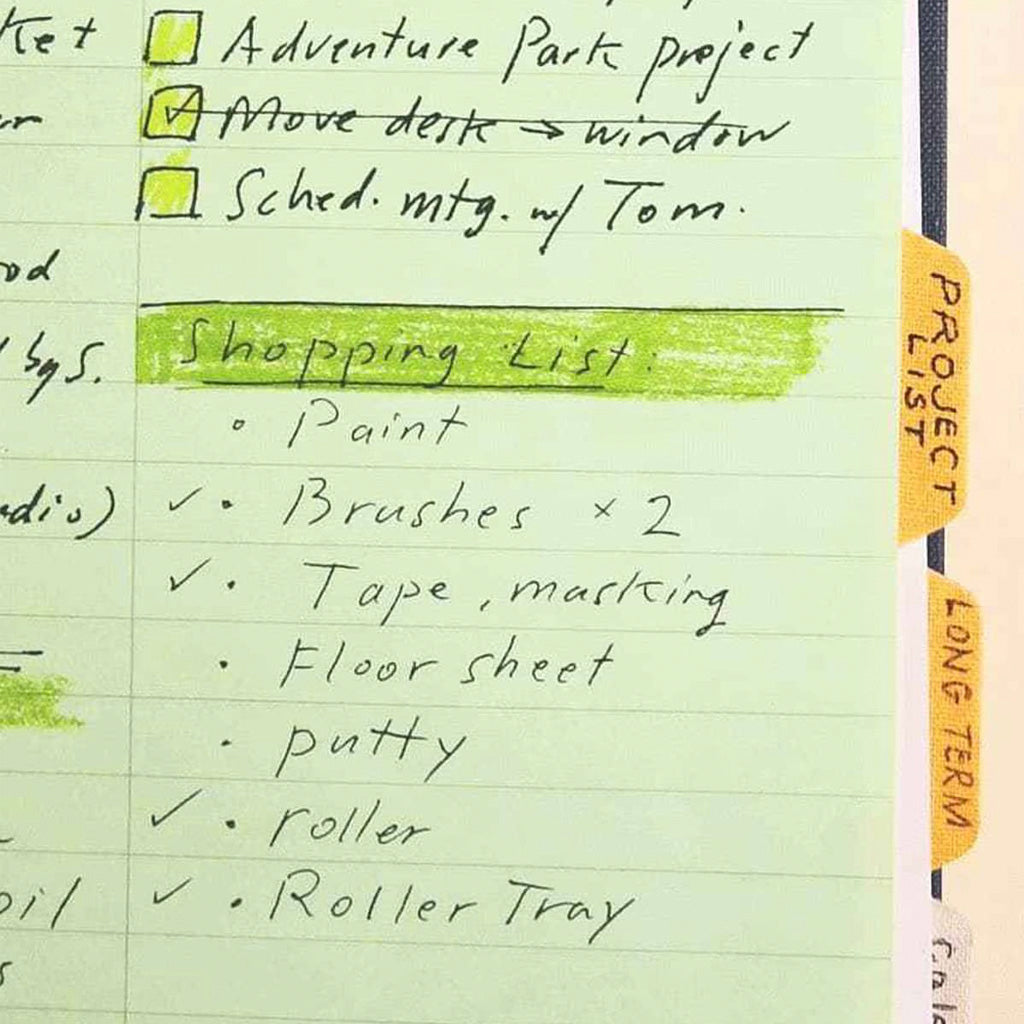 Adventure Park project
Move desk → window
Sched. mtg. w/ Tom.
by S.
Shopping List:
Paint
✓ • Brushes × 2
✓ • Tape, masking
• Floor sheet
• putty
✓ • roller
✓ • Roller Tray
PROJECT
LIST
LONG TERM